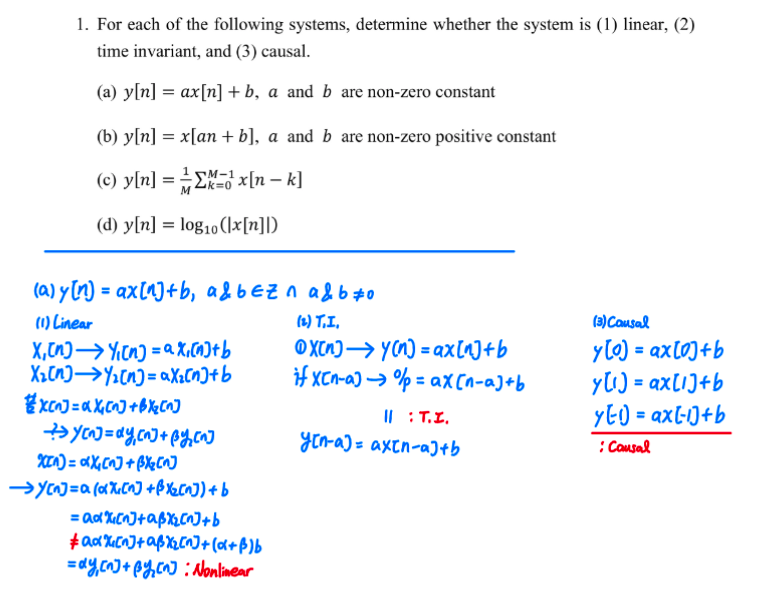 1. For each of the following systems, determine whether the system is (1) linear, (2)
time invariant, and (3) causal.
(a) y[n] = ax[n] + b, a and b are non-zero constant
(b) y[n] = x[an + b], a and b are non-zero positive constant
(c) y[n] = 1/M ∑_{k=0}^{M−1} x[n − k]
(d) y[n] = log₁₀(|x[n]|)
(a) y[n] = ax[n]+b, a & b ∈ Z ∩ a & b ≠ 0
(1) Linear
X₁[n] → Y₁[n] = a X₁[n]+b
X₂[n] → Y₂[n] = aX₂[n]+b
X[n] = αX₁[n] + βX₂[n]
Y[n] = αy₁[n] + βy₂[n]
X[n] = αX₁[n] + βX₂[n]
→ Y[n] = a (αX₁[n] + βX₂[n]) + b
= aαX₁[n] + aβX₂[n] + b
≠ aαX₁[n] + aβX₂[n] + (α+β)b
= αy₁[n] + βy₂[n] : Nonlinear
(2) T.I.
① X[n] → Y[n] = ax[n]+b
if X[n-a] → o/p = ax[n-a]+b
|| : T.I.
y[n-a] = ax[n-a]+b
(3) Causal
y[0] = ax[0]+b
y[1] = ax[1]+b
y[-1] = ax[-1]+b
: Causal